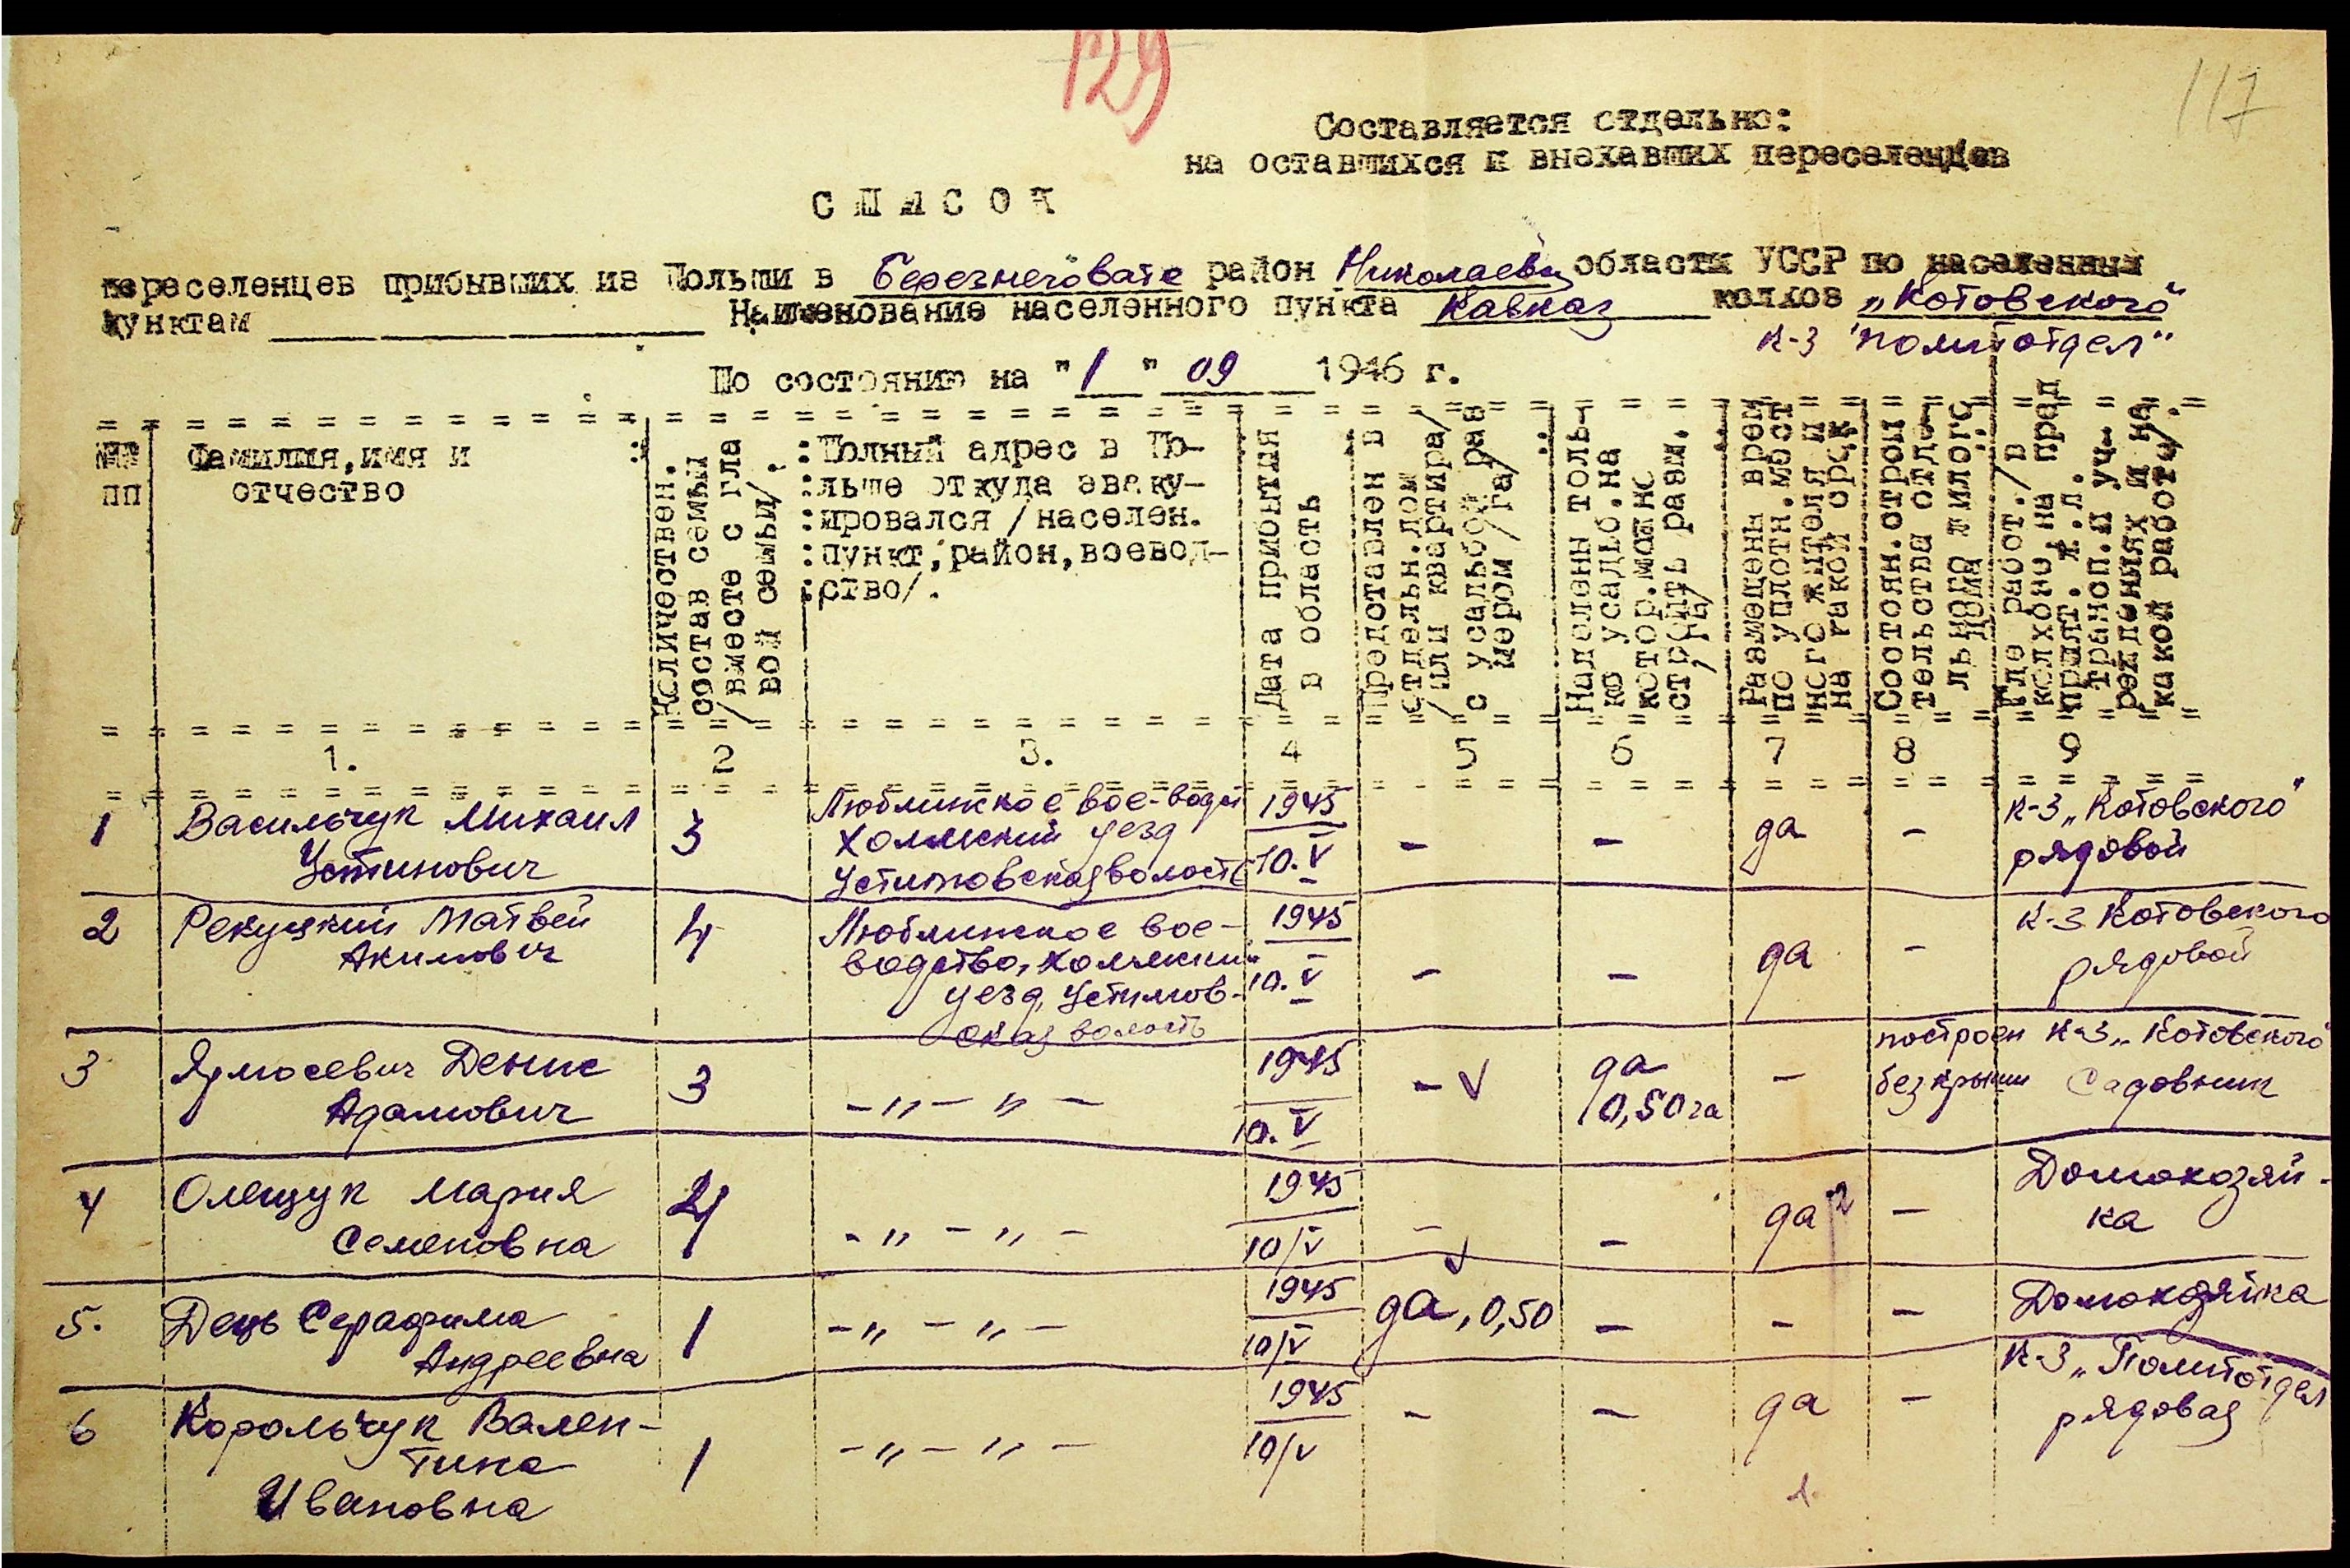 129
117
Составляется отдельно:
на оставшихся и внехавших переселенцев
С П И С О К
переселенцев прибывших из Польши в Березнеговате район Николаевск области УССР по населенным
пунктам Наименование населенного пункта Кавказ колхоз „Котовского"
К-з "политотдел"
По состоянию на "1" 09 1946 г.
№№
пп
Фамилия, имя и
отчество
Количествен.
состав семьи
/вместе с гла
вой семьи/.
Полный адрес в По-
льше откуда эваку-
ировался /населен.
пункт, район, воевод-
ство/.
Дата прибытия
в область
Предоставлен в
отдельн.дом
/или квартира/
с усадьбой раз
мером /га/
Наделены толь-
ко усадьб. на
котор. можно
строить разм.
/га/
Размещены врем
по уплотн.мест
ного жителя и
на какой срок
Состоян.строи
тельства отде-
льного жилого
дома
Где работ./в
колхозе, на пред
прият. ж.д.
трансп.и уч-
реждениях и на
какой работе/.
1. 2 3. 4 5 6 7 8 9
1 Васильчук Михаил 3 Люблинское вое-водст 1945 - - да - К-з „Котовского"
Устинович Холмский уезд 10.V рядовой
Устимовская волость
2 Рекуцкий Матвей 4 Люблинское вое- 1945 - - да - К-з Котовского
Акимович водство, Холмский 10.V рядовой
уезд, Устимов-
ская волость
3 Ярмосевич Денис 3 -„-„- 1945 - V да - построен К-з „Котовского"
Адамович 10.V 0,50 га без крыши Садовник
4 Олещук Мария 4 -„-„- 1945 - - да 2 - Домохозяй-
Семеновна 10/V ка
5. Дець Серафима 1 -„-„- 1945 V да, 0,50 - - - Домохозяйка
Андреевна 10/V
6 Корольчук Вален- 1 -„-„- 1945 - - да - К-з „Политотдел
тина 10/V рядовая
Ивановна
1.